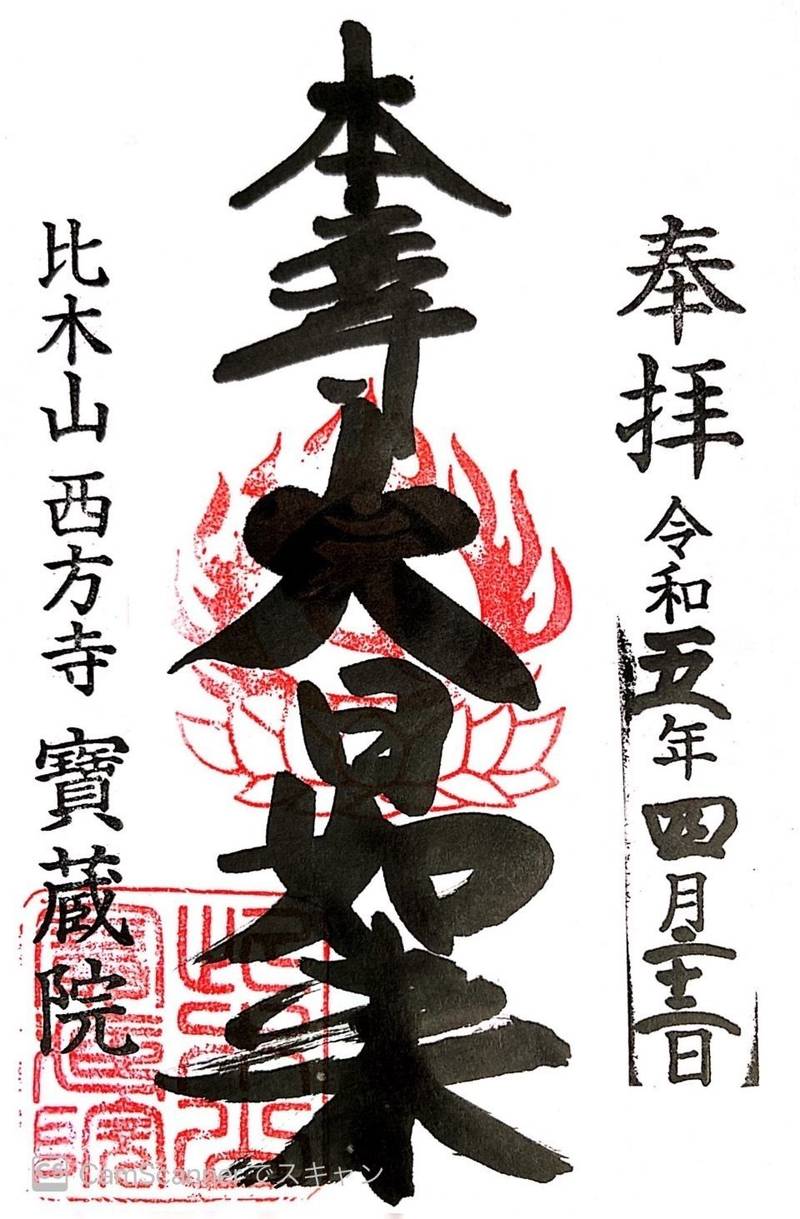 奉拝 令和五年四月二十二日
本尊大日如来
比木山 西方寺 寶蔵院
CS CamScannerでスキャン